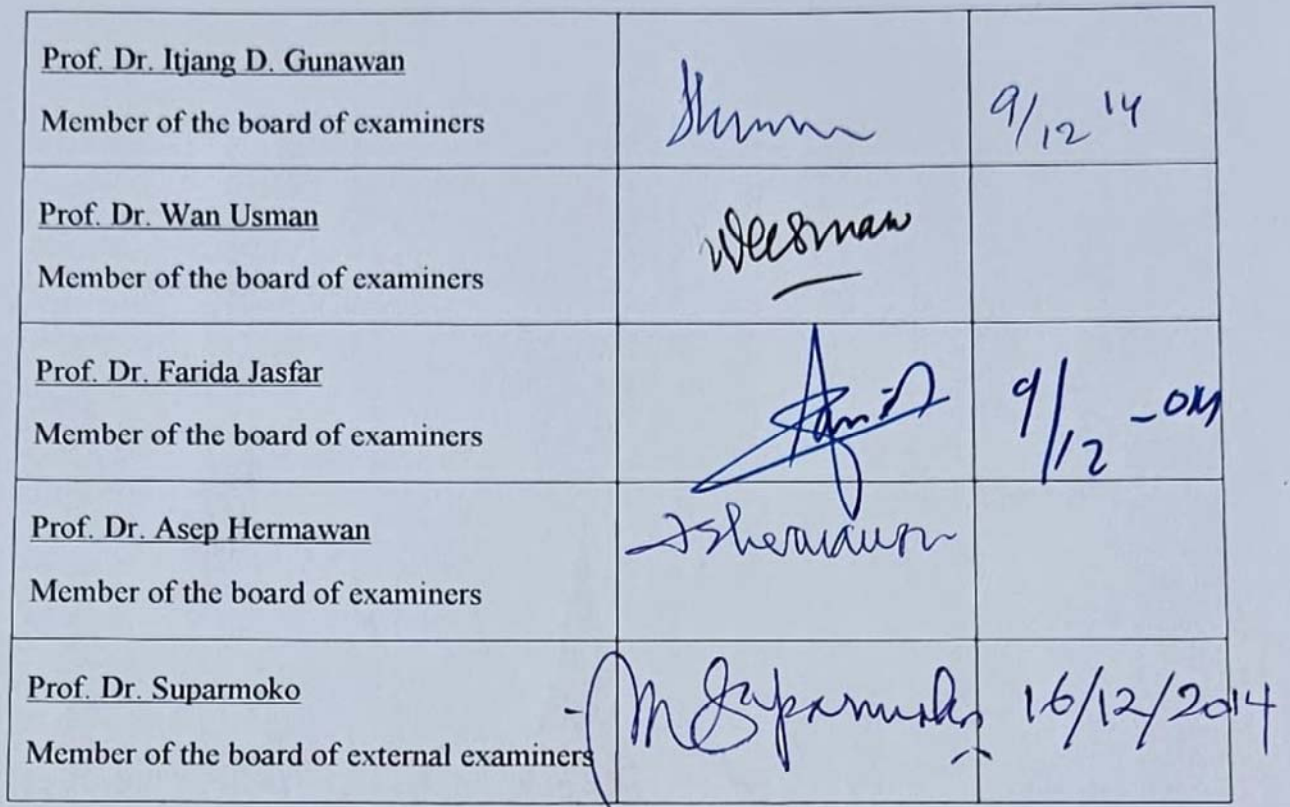 Prof. Dr. Itjang D. Gunawan
Member of the board of examiners
9/12 14
Prof. Dr. Wan Usman
Member of the board of examiners
Prof. Dr. Farida Jasfar
Member of the board of examiners
9/12
Prof. Dr. Asep Hermawan
Member of the board of examiners
Prof. Dr. Suparmoko
Member of the board of external examiners
M Suparmoko
16/12/2014